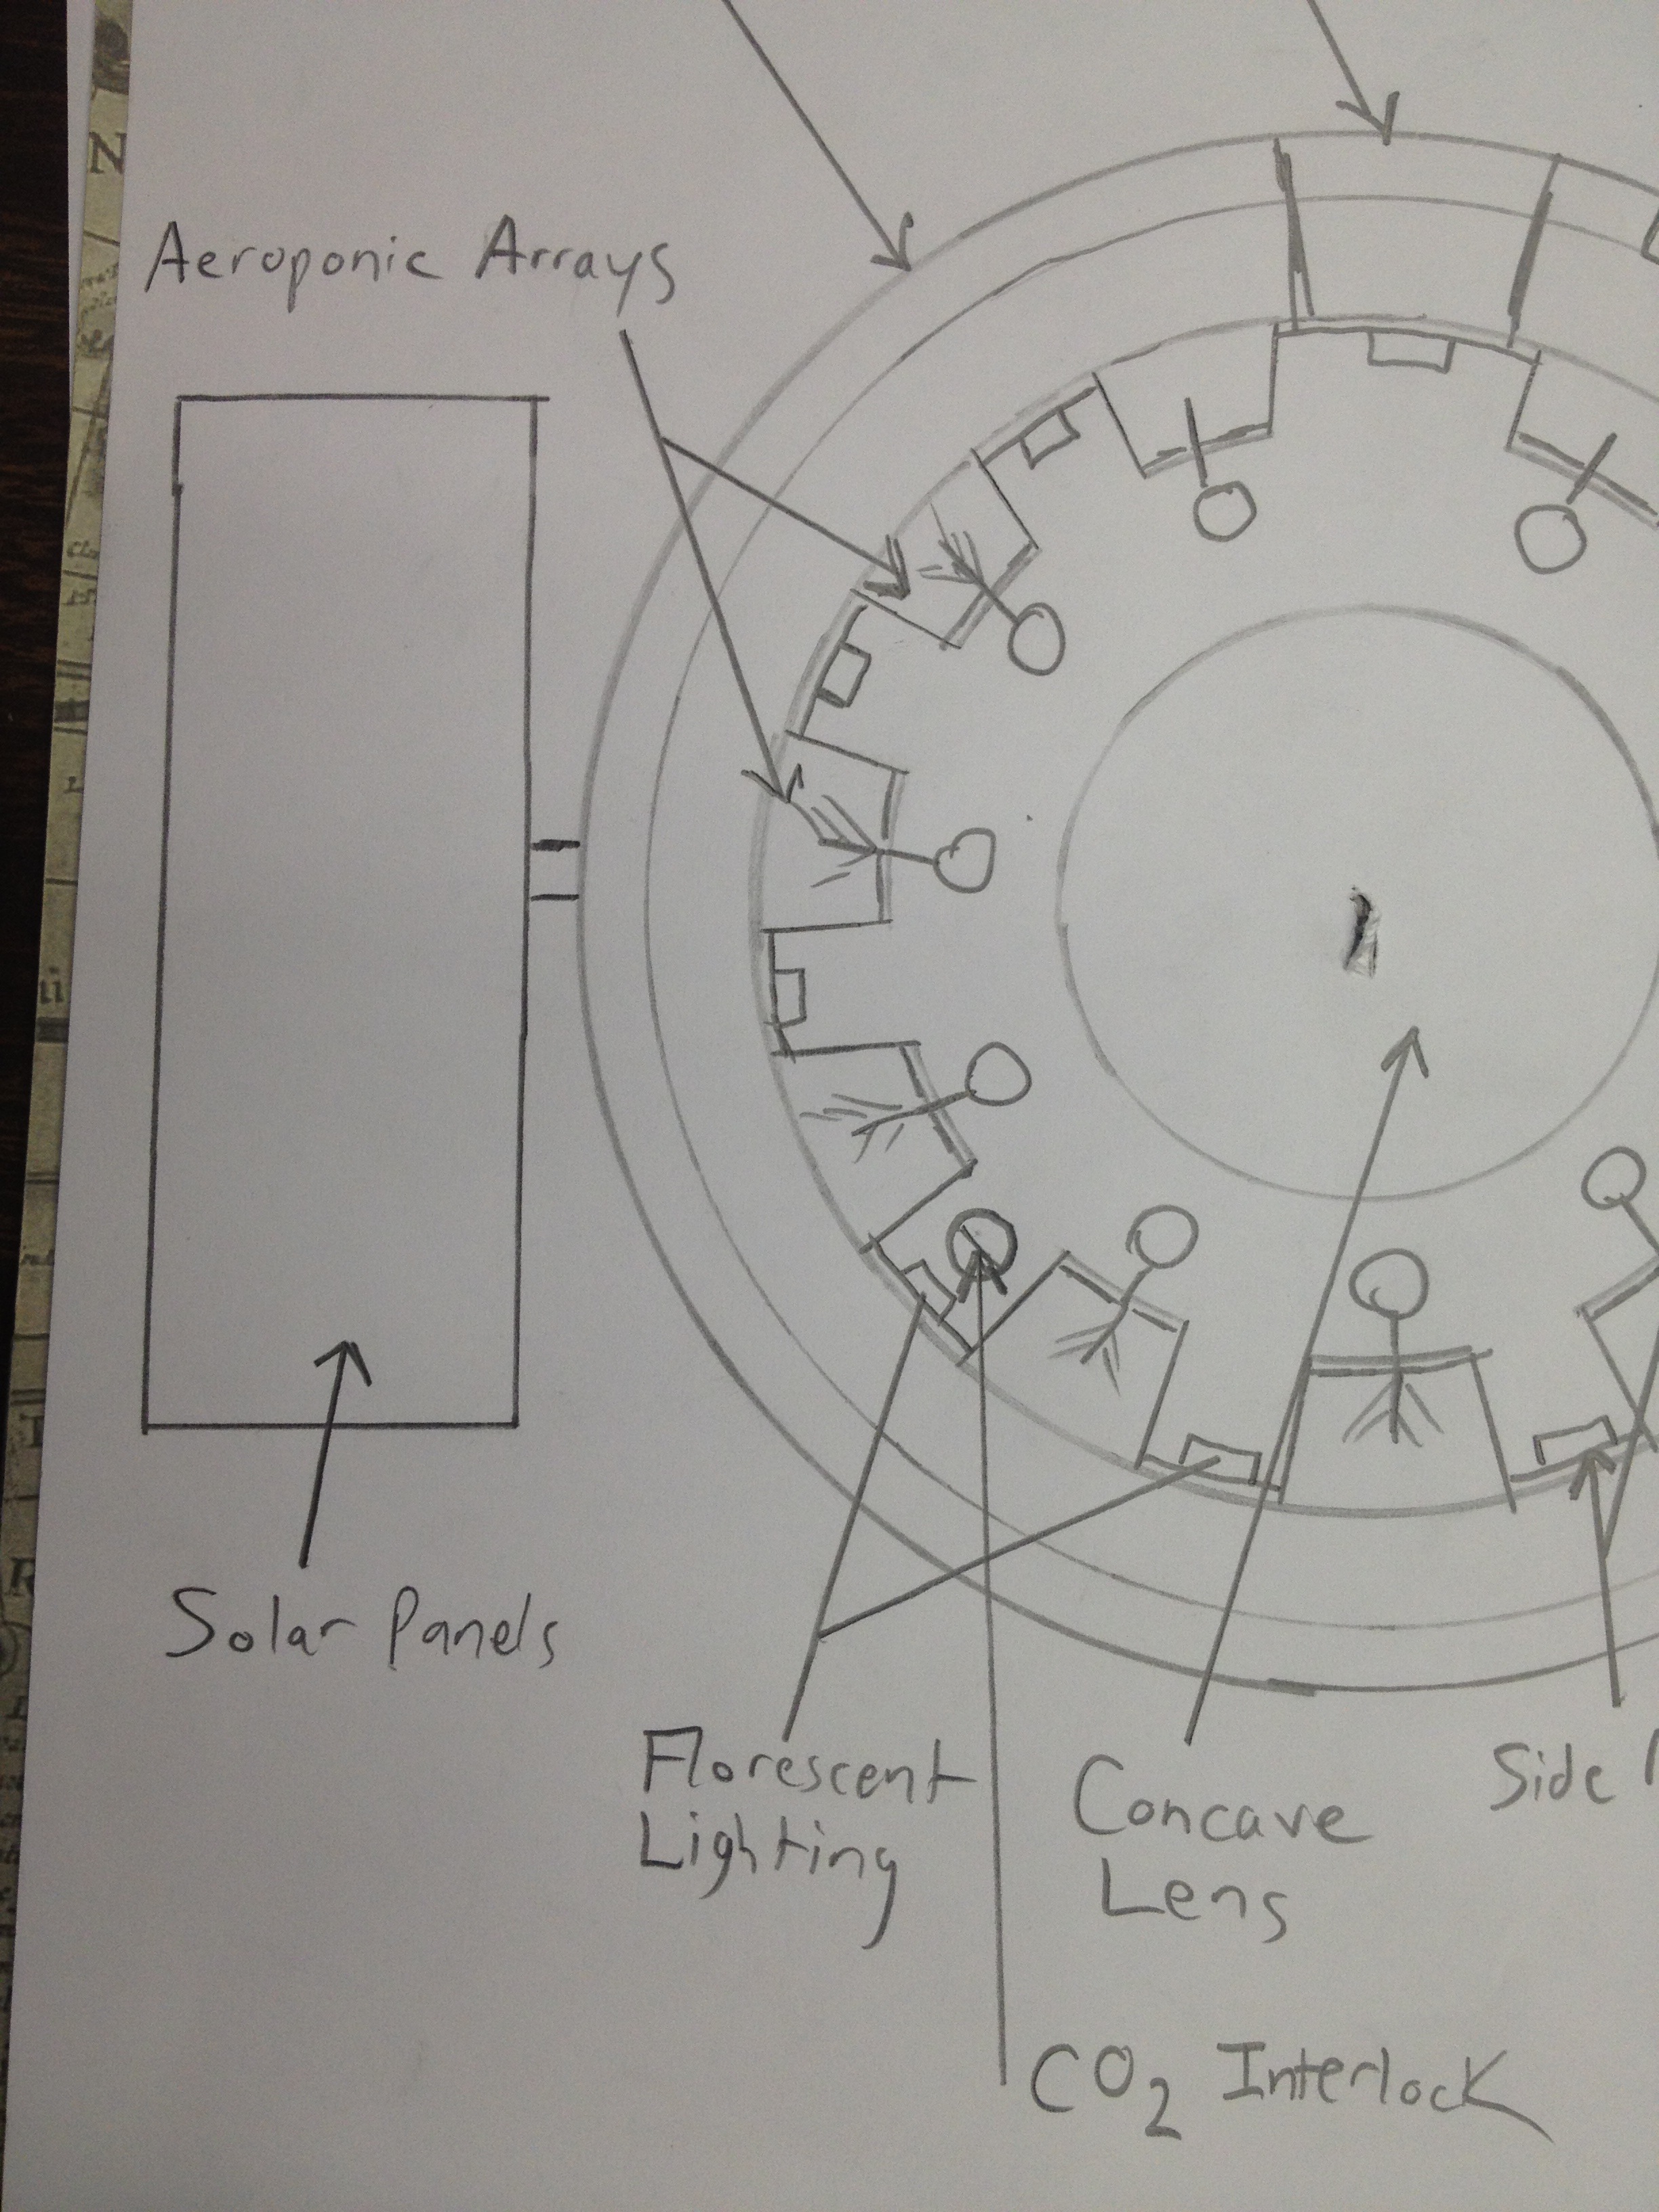 Aeroponic Arrays
Solar Panels
Florescent
Lighting
Concave
Lens
Side
CO₂ Interlock